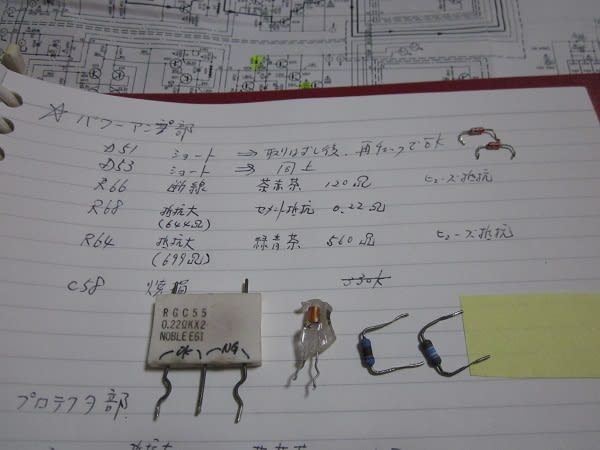 ☆ パワーアンプ部
D51 ショート ⇒ 取りはずし後、再チェックでOK
D53 ショート ⇒ 同上
R66 断線 茶赤茶 120Ω ヒューズ抵抗
R68 抵抗大 セメント抵抗 0.22Ω
(644Ω)
R64 抵抗大 緑青茶 560Ω ヒューズ抵抗
(699Ω)
C58 焼損 330k
RGC55
0.22ΩKX2
NOBLE E61
OK NG
プロテクタ部
抵抗大